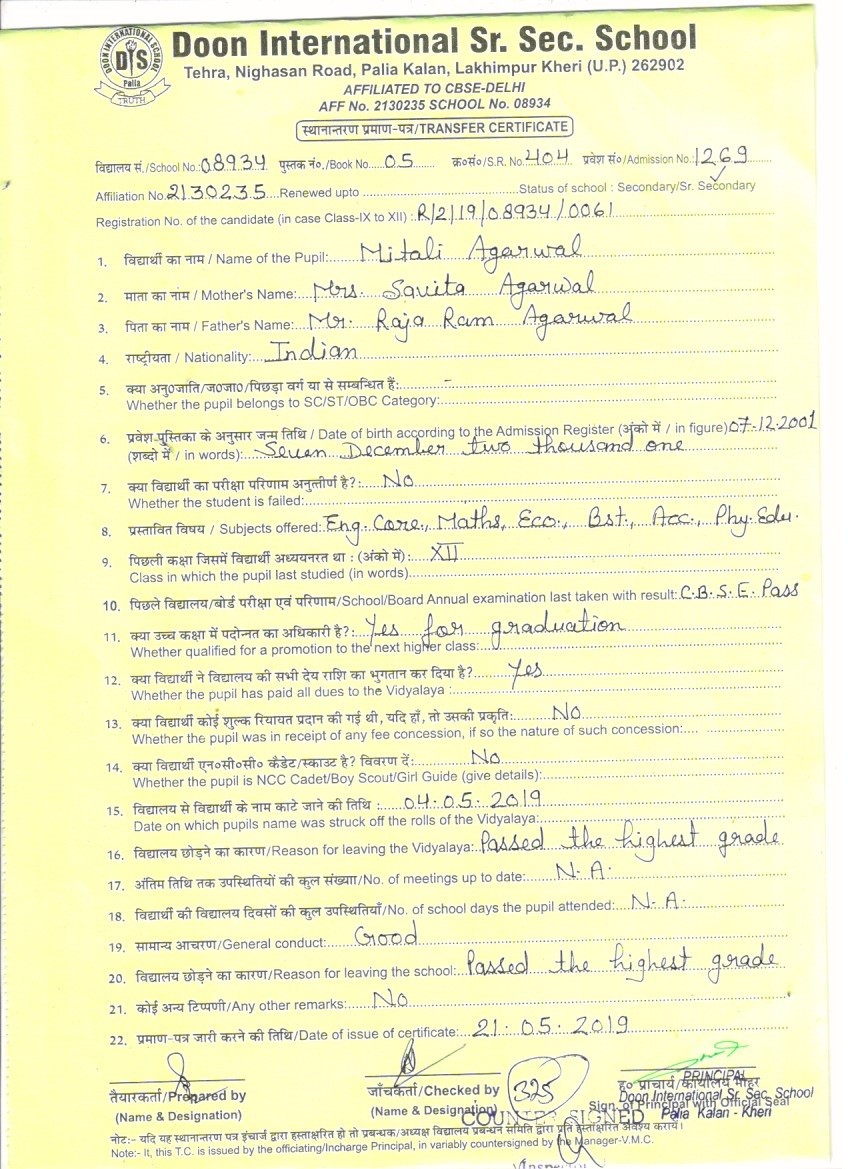 DOON INTERNATIONAL SCHOOL
DIS
Palia
TRUTH
Doon International Sr. Sec. School
Tehra, Nighasan Road, Palia Kalan, Lakhimpur Kheri (U.P.) 262902
AFFILIATED TO CBSE-DELHI
AFF No. 2130235 SCHOOL No. 08934
स्थानान्तरण प्रमाण-पत्र/TRANSFER CERTIFICATE
विद्यालय सं./School No.: 08934 पुस्तक नं०/Book No. 05 क्र०सं०/S.R. No. 404 प्रवेश सं०/Admission No.: 1269
Affiliation No. 2130235 Renewed upto Status of school : Secondary/Sr. Secondary
Registration No. of the candidate (in case Class-IX to XII) : R/2/19/08934/0061
1. विद्यार्थी का नाम / Name of the Pupil: Mitali Agarwal
2. माता का नाम / Mother's Name: Mrs. Savita Agarwal
3. पिता का नाम / Father's Name: Mr. Raja Ram Agarwal
4. राष्ट्रीयता / Nationality: Indian
5. क्या अनु०जाति/ज०जा०/पिछड़ा वर्ग या से सम्बन्धित हैं: -
Whether the pupil belongs to SC/ST/OBC Category:
6. प्रवेश-पुस्तिका के अनुसार जन्म तिथि / Date of birth according to the Admission Register (अंको में / in figure) 07-12-2001
(शब्दो में / in words): Seven December two thousand one
7. क्या विद्यार्थी का परीक्षा परिणाम अनुत्तीर्ण है?: No
Whether the student is failed:
8. प्रस्तावित विषय / Subjects offered: Eng. Core., Maths, Eco., Bst., Acc., Phy. Edu.
9. पिछली कक्षा जिसमें विद्यार्थी अध्ययनरत था : (अंको में): XII
Class in which the pupil last studied (in words)
10. पिछले विद्यालय/बोर्ड परीक्षा एवं परिणाम/School/Board Annual examination last taken with result: C.B.S.E. Pass
11. क्या उच्च कक्षा में पदोन्नत का अधिकारी है?: Yes for graduation
Whether qualified for a promotion to the next higher class:
12. क्या विद्यार्थी ने विद्यालय की सभी देय राशि का भुगतान कर दिया है? Yes
Whether the pupil has paid all dues to the Vidyalaya :
13. क्या विद्यार्थी कोई शुल्क रियायत प्रदान की गई थी, यदि हाँ, तो उसकी प्रकृति: No
Whether the pupil was in receipt of any fee concession, if so the nature of such concession:
14. क्या विद्यार्थी एन०सी०सी० कैडेट/स्काउट है? विवरण दें: No
Whether the pupil is NCC Cadet/Boy Scout/Girl Guide (give details):
15. विद्यालय से विद्यार्थी के नाम काटे जाने की तिथि : 04.05.2019
Date on which pupils name was struck off the rolls of the Vidyalaya:
16. विद्यालय छोड़ने का कारण/Reason for leaving the Vidyalaya: Passed the highest grade
17. अंतिम तिथि तक उपस्थितियों की कुल संख्या/No. of meetings up to date: N.A.
18. विद्यार्थी की विद्यालय दिवसों की कुल उपस्थितियाँ/No. of school days the pupil attended: N.A.
19. सामान्य आचरण/General conduct: Good
20. विद्यालय छोड़ने का कारण/Reason for leaving the school: Passed the highest grade
21. कोई अन्य टिप्पणी/Any other remarks: No
22. प्रमाण-पत्र जारी करने की तिथि/Date of issue of certificate: 21.05.2019
तैयारकर्ता/Prepared by
(Name & Designation)
जाँचकर्ता/Checked by
(Name & Designation)
325
COUNTER SIGNED
PRINCIPAL
ह० प्राचार्य/कार्यालय मोहर
Doon International Sr. Sec. School
Sign. of Principal with Official Seal
Palia Kalan - Kheri
नोट:- यदि यह स्थानान्तरण पत्र इंचार्ज द्वारा हस्ताक्षरित हो तो प्रबन्धक/अध्यक्ष विद्यालय प्रबन्धन समिति द्वारा प्रति हस्ताक्षरित अवश्य करायें।
Note:- It, this T.C. is issued by the officiating/Incharge Principal, in variably countersigned by the Manager-V.M.C.